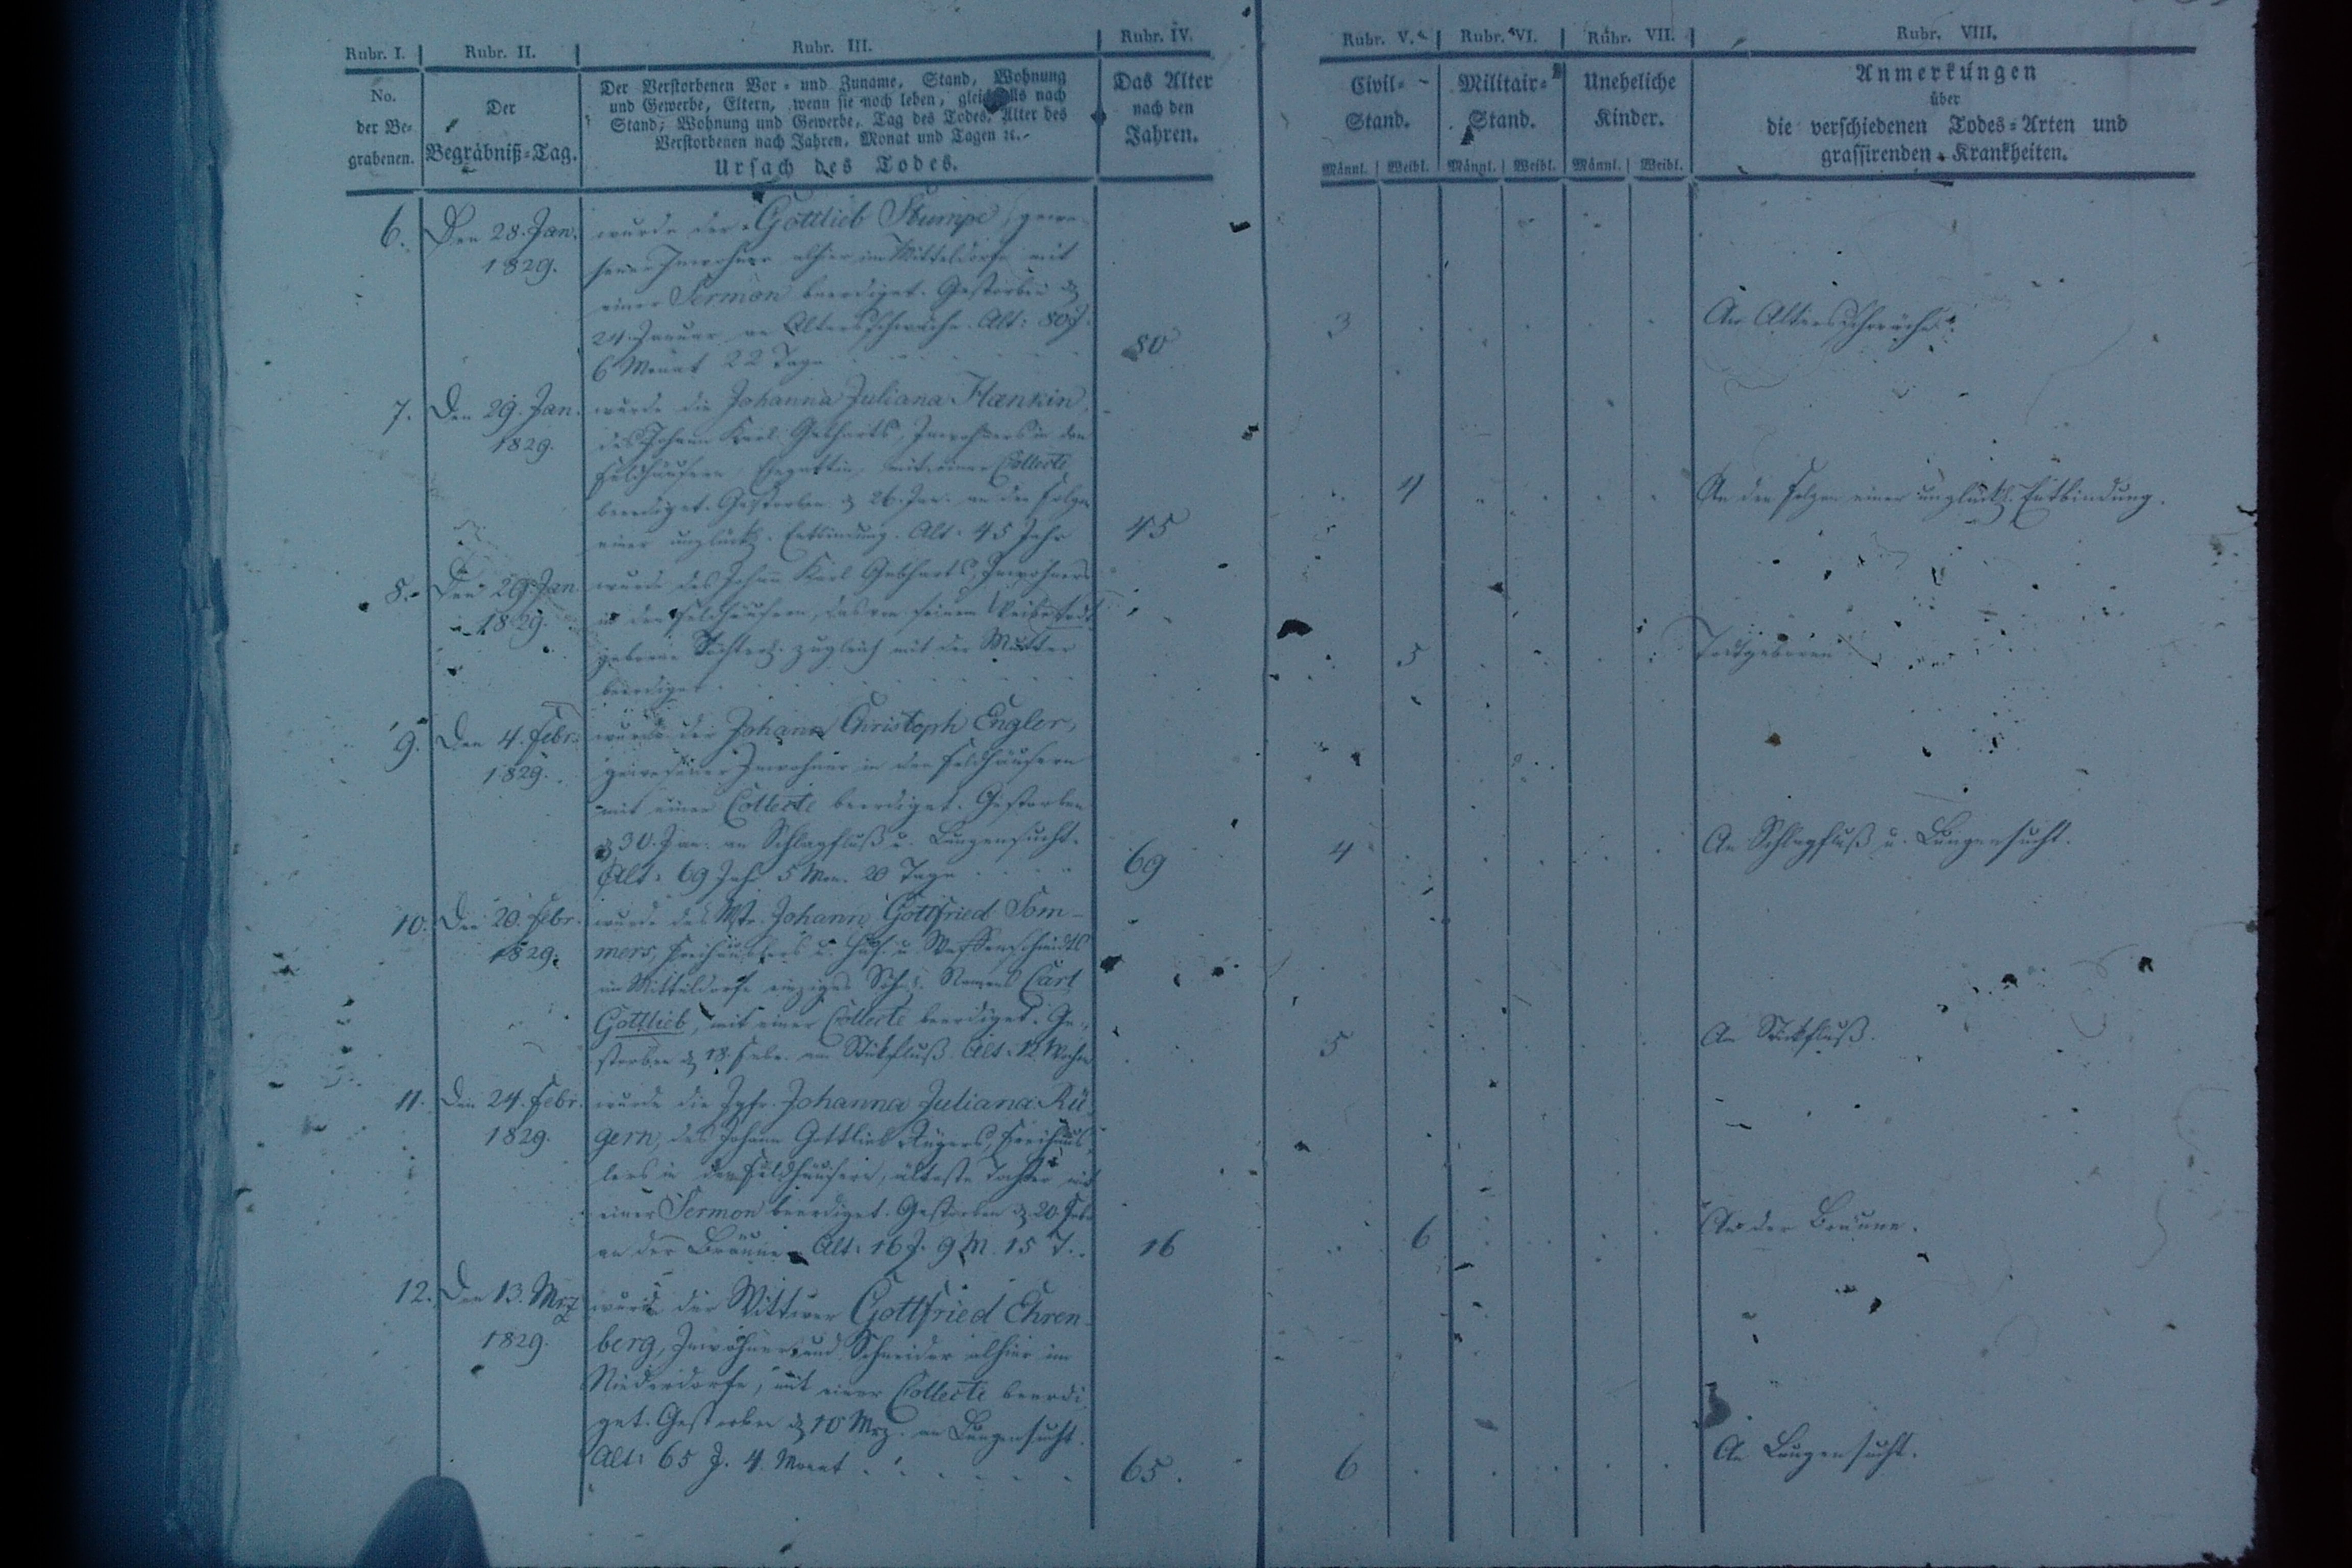 Rubr. I. Rubr. II. Rubr. III. Rubr. IV. Rubr. V. Rubr. VI. Rubr. VII. Rubr. VIII.
No.
der Be-
grabenen.
Der
Begräbniß-Tag.
Der Verstorbenen Vor- und Zuname, Stand, Wohnung
und Gewerbe, Eltern, wenn sie noch leben, gleichfalls nach
Stand, Wohnung und Gewerbe, Tag des Todes, Alter des
Verstorbenen nach Jahren, Monat und Tagen ꝛc.
Ursach des Todes.
Das Alter
nach den
Jahren.
Civil-
Stand.
Männl. Weibl.
Militair-
Stand.
Männl. Weibl.
Uneheliche
Kinder.
Männl. Weibl.
Anmerkungen
über
die verschiedenen Todes-Arten und
grassirenden Krankheiten.
6. Den 28. Jan.
1829.
wurde der Gottlieb Stumpe, gewe-
sener Inwohner alhier im Mitteldorfe mit
einer Sermon beerdiget. Gestorben d.
24. Januar an Altersschwäche. Alt: 80 J.
6 Monat 22 Tage
80
3
An Altersschwäche.
7. Den 29. Jan.
1829.
wurde die Johanna Juliana Hankin,
des Johann Karl Gebharts, Inwohners in den
Feldhäusern Ehegattin, mit einer Collecte
beerdiget. Gestorben d. 26. Jan. an den Folgen
einer unglückl. Entbindung. Alt: 45 Jahr
45
4
An den Folgen einer unglückl. Entbindung.
8. Den 29. Jan.
1829.
wurde des Johann Karl Gebharts, Inwohners
in den Feldhäusern, das von seinem Weibe todt
geborene Töchterl. zugleich mit der Mutter
beerdiget.
5
Todtgeboren
9. Den 4. Febr.
1829.
wurde der Johann Christoph Engler,
gewesener Inwohner in den Feldhäusern
mit einer Collecte beerdiget. Gestorben
d. 30. Jan. an Schlagfluß u. Lungensucht.
Alt: 69 Jahr 5 Mon. 20 Tage
69
4
An Schlagfluß u. Lungensucht.
10. Den 20. Febr.
1829.
wurde des Mstr. Johann Gottfried Som-
mers, Freihäuslers u. Huf- u. Waffenschmidts
im Mitteldorfe einziges Söhnl. Namens Carl
Gottlieb, mit einer Collecte beerdiget. Ge-
storben d. 18. Febr. am Stickfluß. Alt: 12 Wochen
5
An Stickfluß.
11. Den 24. Febr.
1829.
wurde die Jgfr. Johanna Juliana Rü-
gern, des Johann Gottlieb Rügers, Freihäus-
lers in den Feldhäusern, älteste Tochter mit
einer Sermon beerdiget. Gestorben d. 20. Febr.
an der Bräune. Alt: 16 J. 9 M. 15 T.
16
6
An der Bräune.
12. Den 13. Mrz
1829.
wurde der Wittwer Gottfried Ehren-
berg, Inwohner und Schneider alhier im
Niederdorfe, mit einer Collecte beerdi-
get. Gestorben d. 10 Mrz. an Lungensucht.
Alt: 65 J. 4. Monat
65.
6
An Lungensucht.